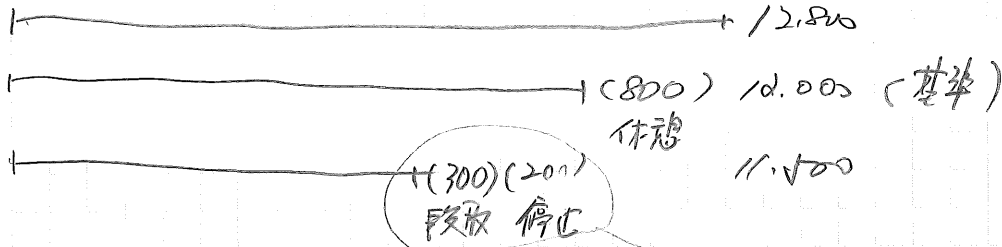 12.800
(800) 12.000 (基準)
休憩
(300)(200) 11.500
段取 停止